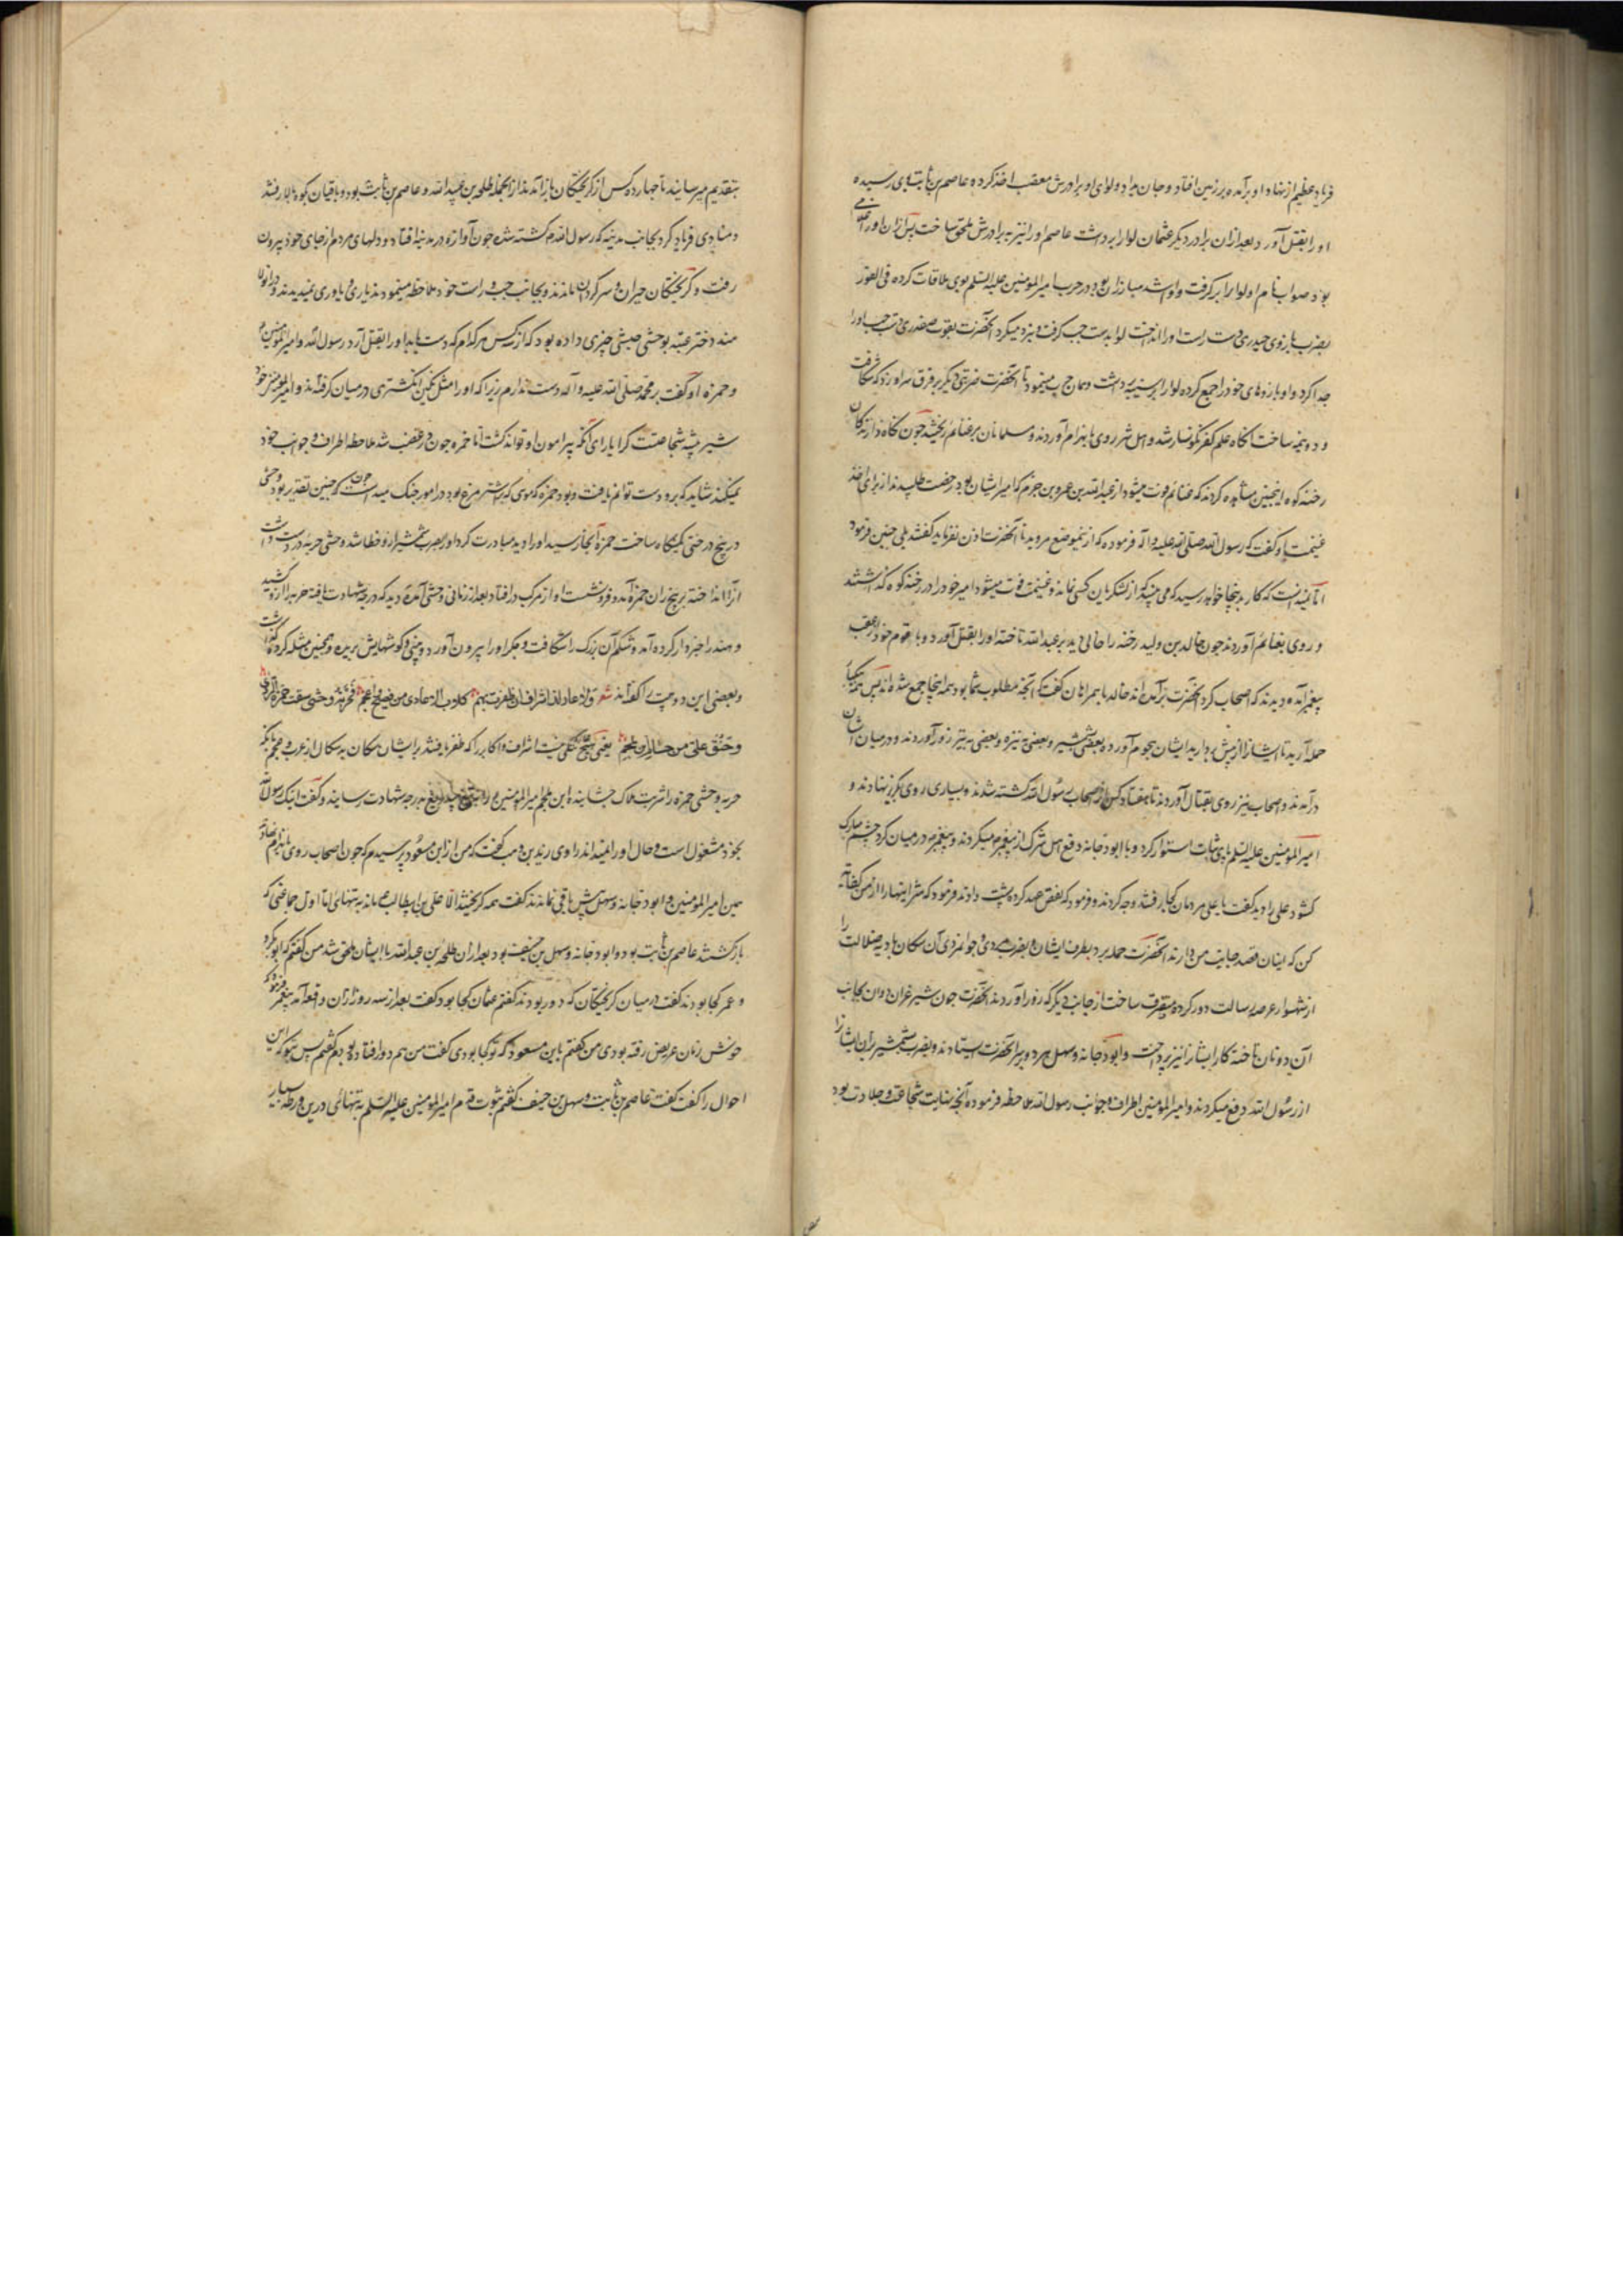 فریاد عظیم از نهاد او برآمده بر زمین افتاد و جان بداد و لوای او برادرش معقب اخذ کرده عاصم بن ثابت بوی رسیده
او را بقتل آورد بعد از ان برادر دیگر عثمان لوا را برداشت عاصم او را نیز به برادرش ملحق ساخت پس از ان او را غلامی
بود صواب نام او لوا را برگرفت و او اشد مبارزان بود در حرب امیر المؤمنین علیه السلم بوی ملاقات کرده فی الفور
بضرب بازوی حیدری دست راست او را انداخت لوا بدست چپ گرفت و نبرد میکرد آنحضرت بقوت صفدری دست چپ او را
جدا کرد و او بازوهای خود را جمع کرده لوا را بر سینه برداشت و همان حرب مینمود تا آنحضرت ضربتی دیگر بر فرق سر او زد که بشکافت
و دو نیمه ساخت آنگاه علم کفر نگونسار شد و اهل شر روی بانهزام آوردند و مسلمانان بر غنایم ریختند چون نگاه دارندگان
رخنه کوه اینچنین مشاهده کردند که غنائم فوت میشود از عبدالله بن عمرو بن حزم که امیر ایشان بود رخصت طلبیدند از برای اخذ
غنیمت او گفت که رسول الله صلی الله علیه و آله فرموده که ازینموضع مروید تا آنحضرت اذن نفرماید گفتند بلی چنین فرمود
اما ندانست که کار بدینجا خواهد رسید که می بینید که از لشکریان کسی نمانده و غنیمت فوت میشود امیر خود را در رخنه کوه گذاشتند
و روی بغنائم آوردند چون خالد بن ولید رخنه را خالی دید بر عبدالله تاخته او را بقتل آورد و با قوم خود از عقب
پیغمبر آمده دیدند که اصحاب گرد آنحضرت برآمده اند خالد با همراهان گفت که آنچه مطلوب شما بود همه اینجا جمع شده اند پس همه یکبار
حمله آرید تا ایشانرا از پیش بردارید ایشان هجوم آورده بعضی بشمشیر و بعضی به نیزه و بعضی به تیر زور آوردند و درمیان ایشان
درآمدند و اصحاب نیز روی بقتال آوردند تا هفتاد کس از اصحاب رسول الله کشته شدند و بسیاری روی بگریز نهادند و
امیر المؤمنین علیه السلم پای ثبات استوار کرد و با ابو دجانه دفع اهل شرک از پیغمبر میکردند و پیغمبر درمیان گرد چشم مبارک
کشود علی را دید گفت یا علی مردمان کجا رفتند و چه کردند و فرمود که نقض عهد کرده پشت دادند فرمود که شر اینها را از من کفایت
کن که اینان قصد جانب من دارند آنحضرت حمله برد بطرف ایشان و بضرب مردی و جوانمردی آن سگان بادیه ضلالت را
از شهسوار عرصه رسالت دور کرده متفرق ساخت از جانب دیگر که زور آوردند آنحضرت چون شیر غران دوان بجانب
آن دونان تاخته کار ایشانرا نیز پرداخت و ابو دجانه و سهل هر دو بر سر آنحضرت ایستادند و بضرب شمشیر بران ایشانرا
از رسول الله دفع میکردند و امیر المؤمنین اطراف و جوانب رسول الله ملاحظه فرموده آنچه نهایت شجاعت و جلادت بود
بتقدیم میرسانید تا چهارده کس از گریختگان باز آمدند از آنجمله طلحه بن عبیدالله و عاصم بن ثابت بود و باقیان بکوه بالا رفتند
و منادی فریاد کرد بجانب مدینه که رسول الله کشته شده چون آوازه در مدینه افتاد و دلهای مردم از جای خود بیرون
رفت و گریختگان حیران و سرگردان ماندند و بجانب چپ و راست خود ملاحظه مینمودند یاری و یاوری نمیدیدند و دران زمان
هند دختر عتبه بوحشی حبشی چیزی داده بود که از سه کس هر کدام که دست یابد او را بقتل آرد رسول الله و امیر المؤمنین
و حمزه او گفت بر محمد صلی الله علیه و آله دست ندارم زیرا که او را مثل نگین انگشتری درمیان گرفته اند و امیر المؤمنین خود
شیر بیشه شجاعتست کرا یارای آنکه پیرامون او تواند گشت اما حمزه چون در غضب شد ملاحظه اطراف و جوانب خود
نمیکند شاید که برو دست توانم یافت و بود حمزه که موی که بر اشتر مرغ بود در امور جنگ میداشت چون که چنین تقدیر بود وحشی
در بیخ درختی کمینگاه ساخت حمزه آنجا رسید او را دید مبادرت کرد او را بضرب شمشیر از او خطا شد وحشی حربه در دست داشت
آنرا انداخته بر بیخ ران حمزه آمد و فرو نشست او از مرکب درافتاد بعد از زمانی وحشی آمده دید که درجه شهادت یافته حربه را ازو کشید
و هند را خبردار کرده آمد و شکم آن بزرگ را شکافت و جگر او را بیرون آورد و بینی و گوشهایش بریده و همچنین مثله کرده گذاشت
و بعضی این دو بیت را گفته اند شعر ولا عار للاشراف ان ظفرت بهم کلاب الاعادی من فصیح و اعجم فحربة وحشی سقت حمزة الردی
و حتف علی من حسام ابن ملجم یعنی هیچ ننگ نیست اشراف و اکابر را که ظفر یافتند بر ایشان سگان به سگال از عرب و عجم چنانکه
حربه وحشی حمزه را شربت هلاک چشانید و ابن ملجم امیر المؤمنین را به تیغ بدرجه شهادت رسانید و گفت اینک رسول الله
بخود مشغول است و حال او را میداند راوی زید بن وهب گفت که من از ابن مسعود پرسیدم که چون اصحاب روی بانهزام نهادند
همین امیر المؤمنین و ابو دجانه و سهل پیش باقی نماندند گفت همه گریختند الا علی بن ابیطالب ع ماند به تنهائی اما اول جماعتی که
بازگشتند عاصم بن ثابت بود و ابو دجانه و سهل بن حنیف بود بعد از ان طلحه بن عبدالله با ایشان ملحق شد من گفتم که ابوبکر
و عمر کجا بودند گفت درمیان گریختگان که دور بودند گفتم عثمان کجا بود گفت بعد از سه روز از ان واقعه آمد پیغمبر فرمود که
خوش زنان عریض رفته بودی من گفتم بابن مسعود که تو کجا بودی گفت من هم دور افتاده بودم گفتم پس تو که این
احوال را گفت گفت عاصم بن ثابت و سهل بن حنیف گفتم ثبوت قدم امیر المؤمنین علیه السلم به تنهائی درین ورطه بسیار